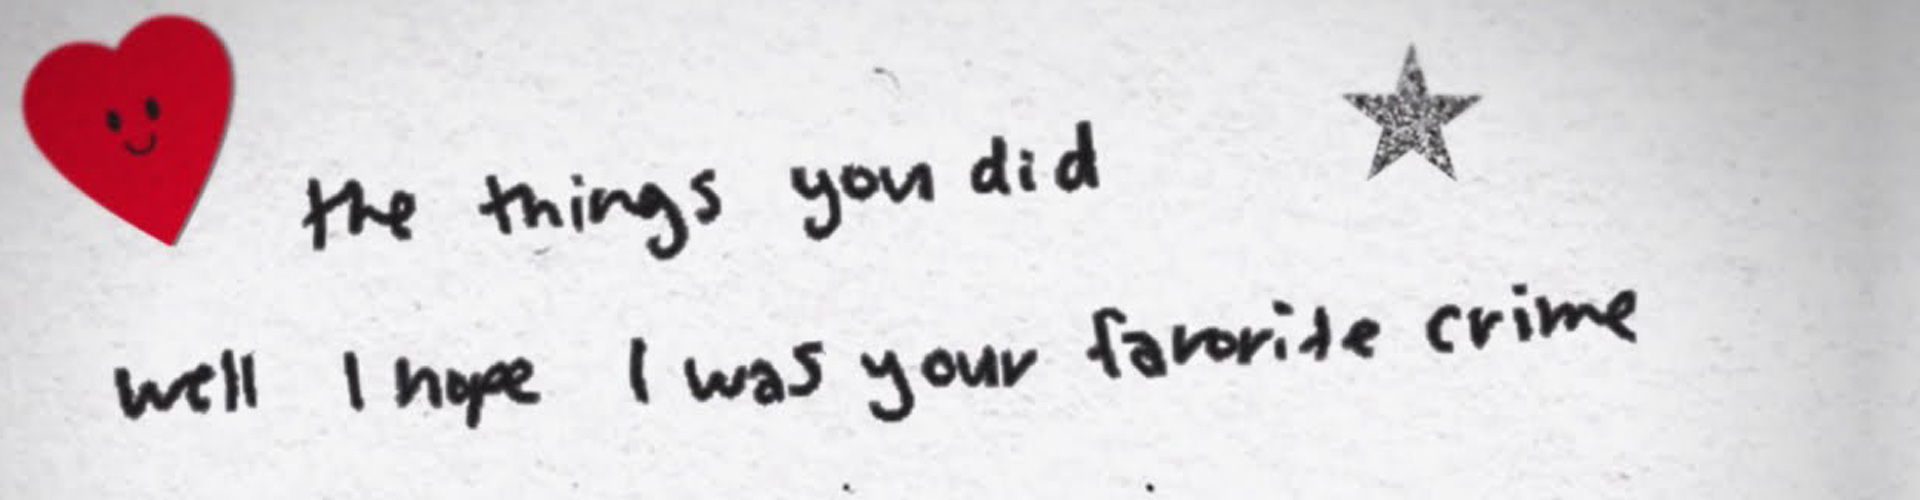 the things you did
well I hope I was your favorite crime